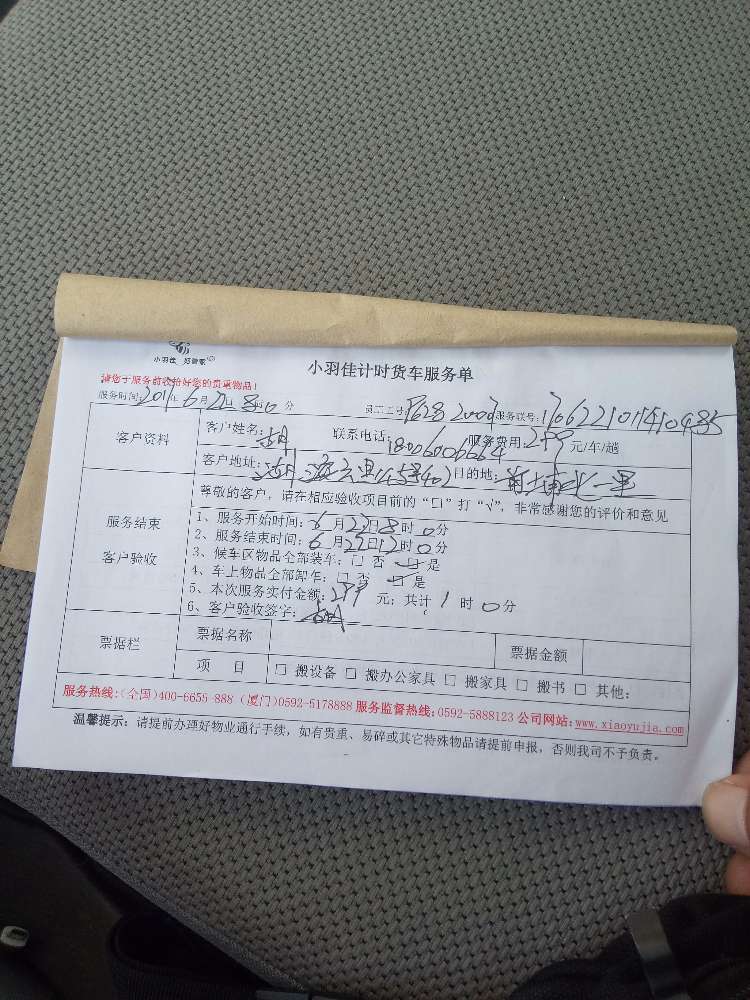 小羽佳 好管家
小羽佳计时货车服务单
请您于服务前收拾好您的贵重物品!
服务时间:2017年6月22日8时0分 员工工号: 服务联号:
客户资料 客户姓名:胡 联系电话:18006006664 服务费用:299元/车/趟
客户地址: 目的地:
尊敬的客户,请在相应验收项目前的“口”打“√”,非常感谢您的评价和意见
服务结束
客户验收
1、服务开始时间:6月22日8时0分
2、服务结束时间:6月22日12时0分
3、候车区物品全部装车:□ 否 □ 是
4、车上物品全部卸车:□ 否 □ 是
5、本次服务实付金额:299元;共计1时0分
6、客户验收签字:胡
票据栏 票据名称 票据金额
项 目 □ 搬设备 □ 搬办公家具 □ 搬家具 □ 搬书 □ 其他:
服务热线:(全国)400-6655-888 (厦门)0592-5178888 服务监督热线:0592-5888123 公司网站:www.xiaoyujia.com
温馨提示:请提前办理好物业通行手续,如有贵重、易碎或其它特殊物品请提前申报,否则我司不予负责。